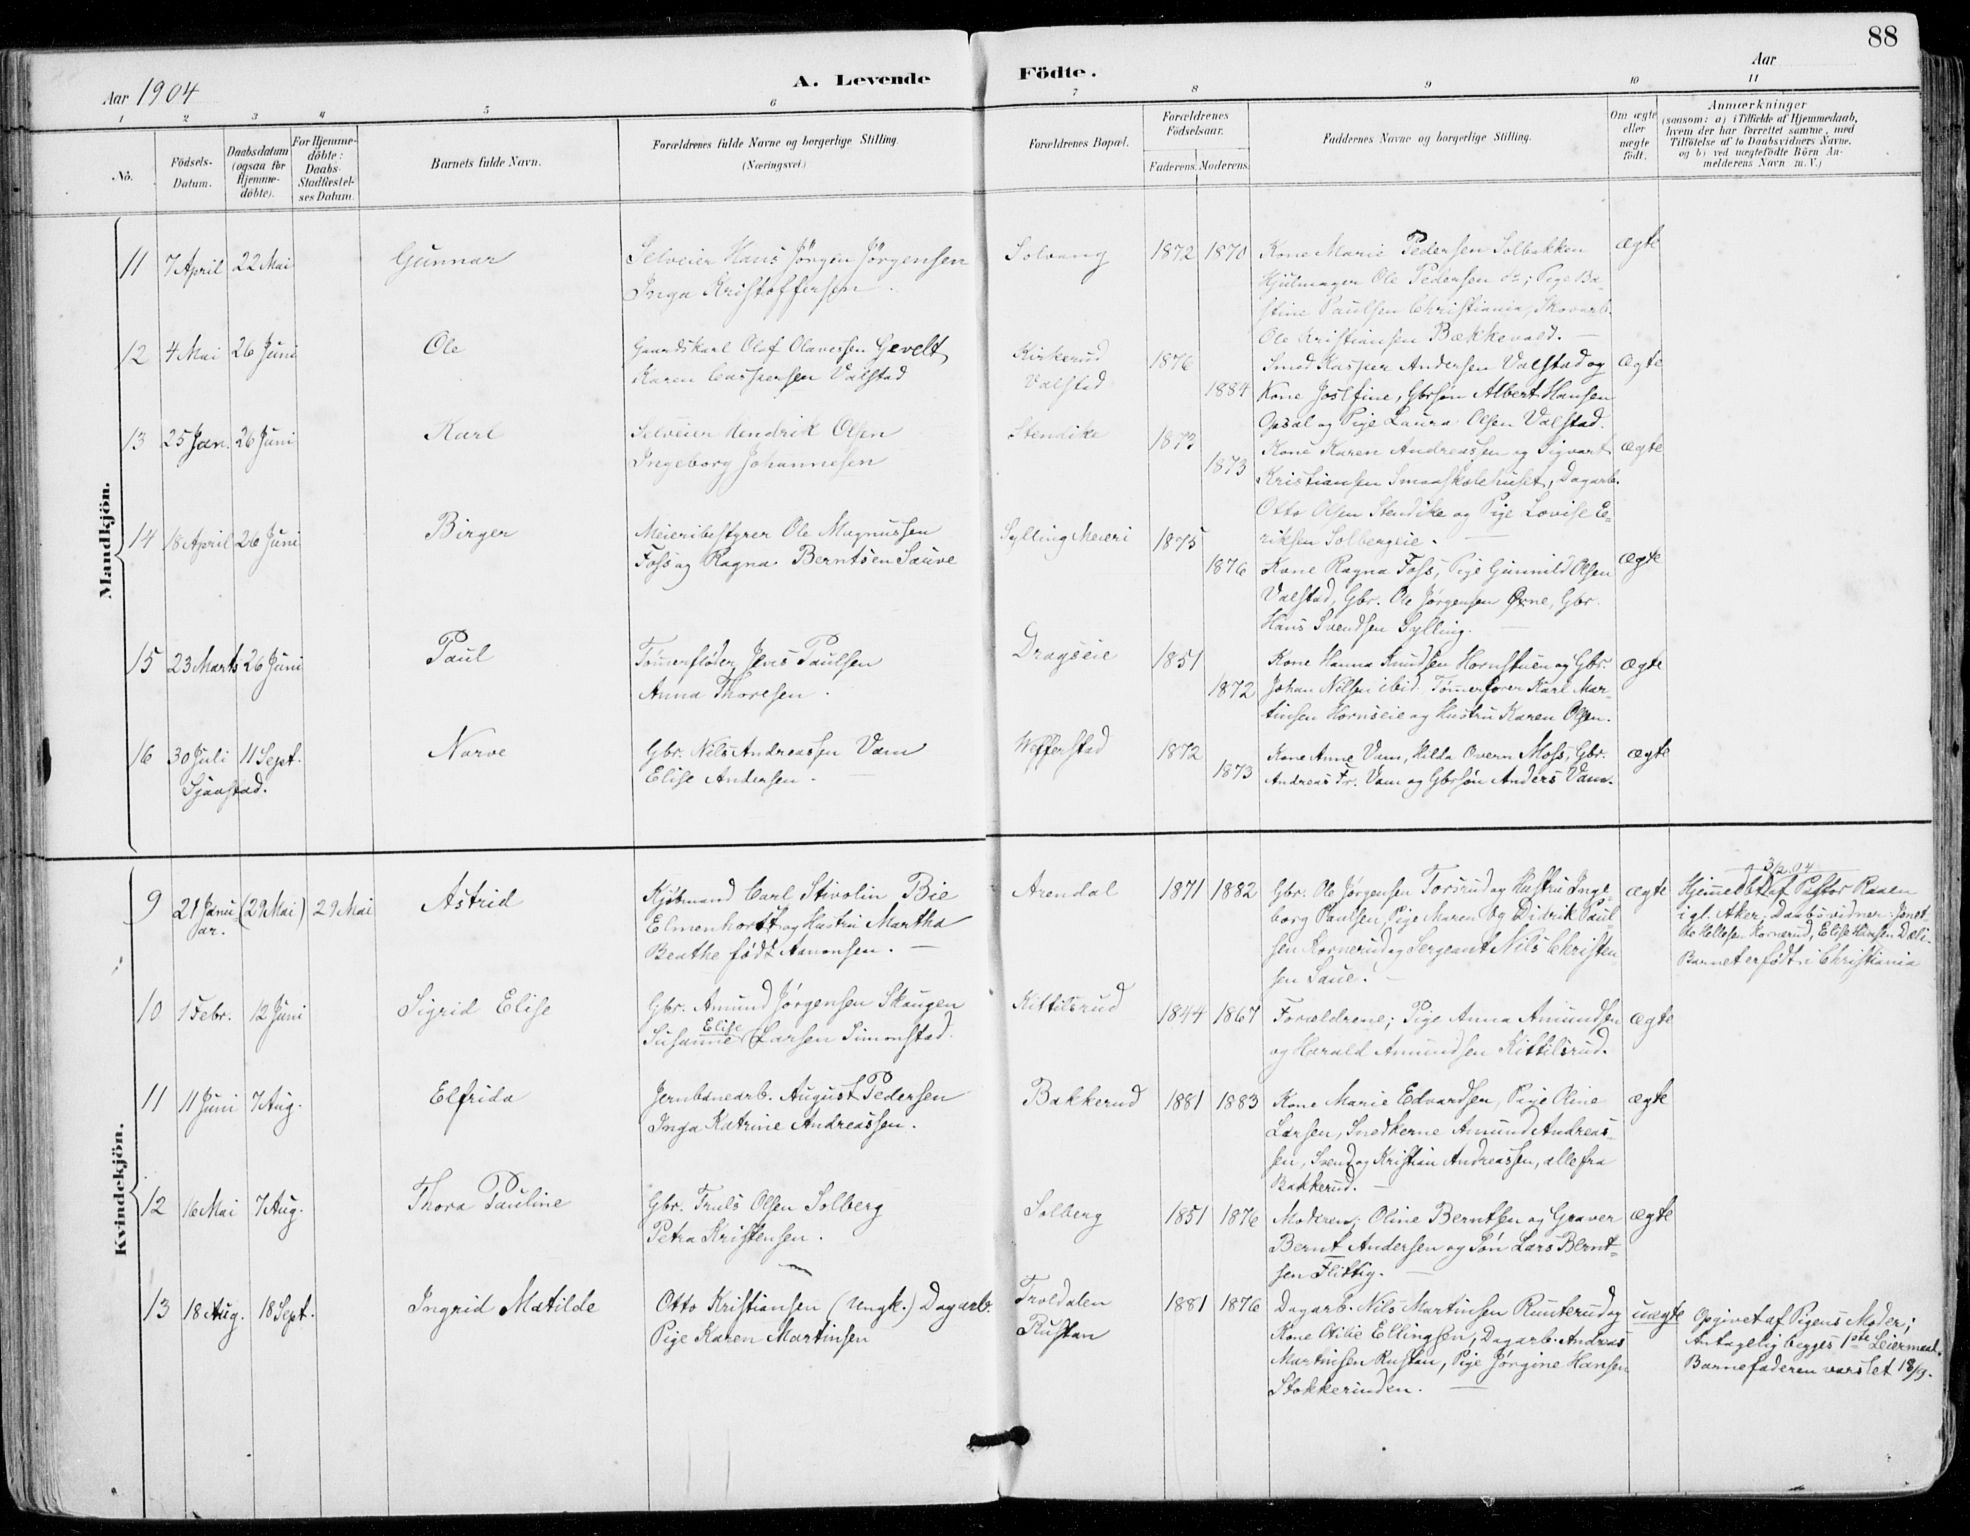 88
Aar 1904
A. Levende Födte.
Aar
1 2 3 4 5 6 7 8 9 10 11
No.
Födsels-Datum.
Daabsdatum (ogsaa for Hjemme-döbte).
For Hjemme-döbte: Daabs-Stadfæstel-ses Datum.
Barnets fulde Navn.
Forældrenes fulde Navne og borgerlige Stilling.
(Næringsvei.)
Forældrenes Bopæl.
Forældrenes Födselsaar.
Faderens. Moderens.
Faddernes Navne og borgerlige Stilling.
Om ægte eller uægte födt.
Anmærkninger
(saasom: a) i Tilfælde af Hjemmedaab,
hvem der har forrettet samme, med
Tilföielse af to Daabsvidners Navne,
og b) ved uægtefödte Börn An-
melderens Navn m. V.)
Mandkjön.
11 7 April 22 Mai Gunnar
Selveier Hans Jörgen Jörgensen
Inga Kristoffersen.
Solvang 1872 1870
Kone Marie Pedersen Solbakken
Hjulmager Ole Pedersen do; Pige Ba-
stine Paulsen Christiania, Skovarb.
Ole Kristiansen Bækkevold. —
ægte
12 4 Mai 26 Juni Ole
Gaardskarl Olaf Olavessen Gevelt
Karen Caspersen Valstad
Kirkerud
Valstad
1876
1884
Smed Kasper Andersen Valstad og
Kone Josefine, Gbrsøn Albert Hansen
og Pige Laura Olsen Valstad.
ægte
13 25 Jan. 26 Juni Karl
Selveier Hendrik Olsen
Ingeborg Johannesen
Stendike
1873
1873
Kone Karen Andreassen og Sigvart
Kristiansen Smaaskolehuset, Dagarb.
Otto Olsen Stendike og Pige Lovise E-
riksen Solbergeie. —
ægte
14 18 April 26 Juni Birger
Meieribestyrer Ole Magnussen
Foss og Ragna Berntsen Sauve
Sylling Meieri
1875
1876
Kone Ragna Foss, Pige Gunnild Olsen
Valstad, Gbr. Ole Jørgensen Øvne, Gbr.
Hans Svendsen Sylling. —
ægte
15 23 Marts 26 Juni Paul
Tømerfløder Jens Paulsen
Anna Thoresen.
Dragseie
1851
1872
Kone Hanna Knudsen Hornstuen og Gbr.
Johan Nilsen ibid. Tømerfører Karl Mar-
tinsen Hornseie og Hustru Karen Olsen.
ægte
16 30 Juli 11 Sept. Norve
Sjaastad.
Gbr. Nils Andreassen Vam
Elise Andersen.
Wefferstad
1872
1873
Kone Anne Vam, Hilda Overn Moss, Gbr.
Andreas Fr. Vam og Gbrsøn Anders Vam.
ægte
Kvindekjön.
9 21 Janu- (29 Mai) 29 Mai Astrid
ar.
Kjøbmand Carl Stivolin Bie
Elmenhorst og Hustru Martha
Beathe født Aamonsen. —
Arendal 1871 1882
Gbr. Ole Jørgensen Torsrud og Hustru Inge-
borg Paulsen, Pige Maren og Didrik Paul-
sen Kornerud og Sergeant Nils Christen-
sen Saue.
ægte
3/2 04
Hjemedøbt af Pastor Raaen
i gl. Aker; Daabsvidner:
Hellesen Kornerud, Elise Hansen Dæli.
Barnet er født i Christiania
10 1 Febr. 12 Juni Sigrid Elise
Gbr. Amund Jørgensen Skaugen
Susanne Elise Larsen Simonstad.
Kittilsrud 1844 1867
Forældrene; Pige Anna Amundsen
og Harald Amundsen Kittilsrud.
ægte
11 11 Juni 7 Aug. Elfrida
Jernbanearb. August Pedersen
Inga Katrine Andreassen.
Bakkerud 1881 1883
Kone Marie Edvardsen, Pige Oline
Larsen, Snedkerne Amund Andreas-
sen, Svend og Kristian Andreassen, alle fra
Bakkerud. —
ægte
12 16 Mai 7 Aug. Thora Pauline
Gbr. Truls Olsen Solberg
Petra Kristensen.
Solberg 1851 1876
Moderen; Oline Berntsen og Graver
Bernt Andersen og Søn Lars Bernt-
sen Flittig. —
ægte
13 18 Aug. 18 Sept. Ingrid Matilde
Otto Kristiansen (Ungk.) Dagarb.
Pige Karen Martinsen
Troldalen
Rustan
1881 1876
Dagarb. Nils Martinsen Ruuterud og
Kone Otilie Ellingsen, Dagarb. Andreas
Martinsen Rustan, Pige Jørgine Hansen
Stokkerinden. —
uægte
Opgivet af Pigens Moder;
Antagelig begges 1ste Leiermaal.
Barnefaderen varslet 18/9.